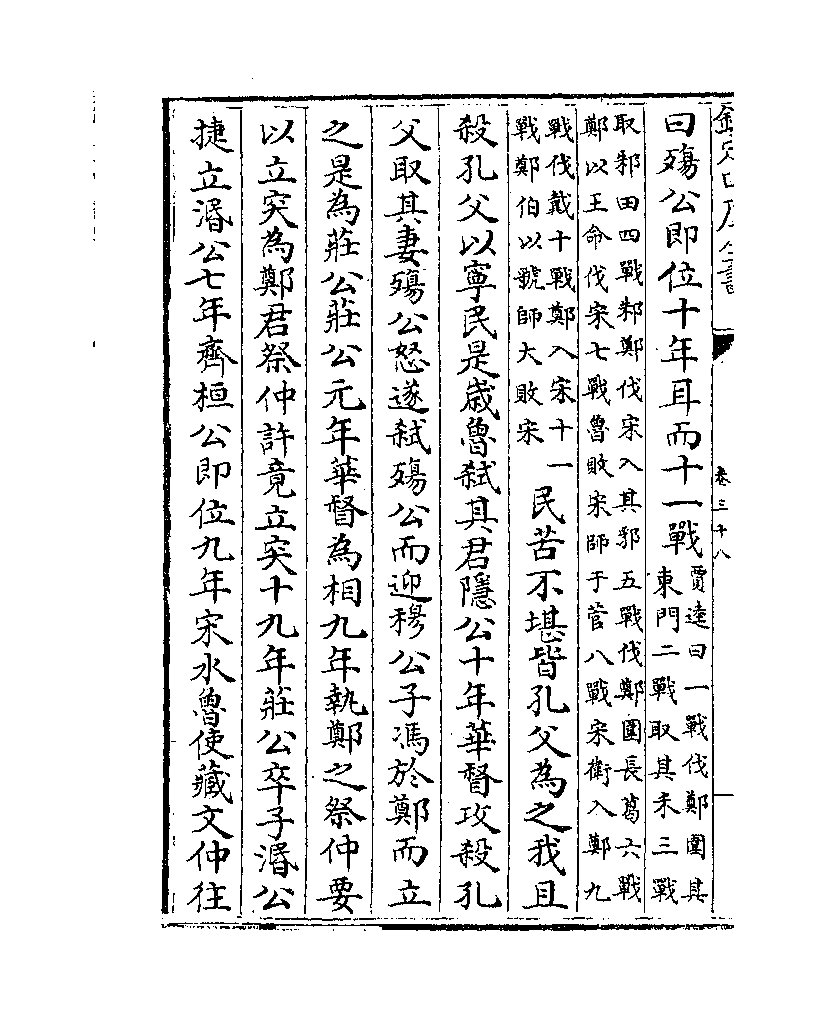 欽定四庫全書
卷三十八
曰殤公即位十年耳而十一戰
賈逵曰一戰伐鄭圍其
東門二戰取其禾三戰
取邾田四戰邾鄭伐宋入其郛五戰伐鄭圍長葛六戰
鄭以王命伐宋七戰魯敗宋師于菅八戰宋衛入鄭九
戰伐戴十戰鄭入宋十一
戰鄭伯以虢師大敗宋
民苦不堪皆孔父為之我且
殺孔父以寧民是歲魯弒其君隱公十年華督攻殺孔
父取其妻殤公怒遂弒殤公而迎穆公子馮於鄭而立
之是為莊公莊公元年華督為相九年執鄭之祭仲要
以立突為鄭君祭仲許竟立突十九年莊公卒子湣公
捷立湣公七年齊桓公即位九年宋水魯使藏文仲往